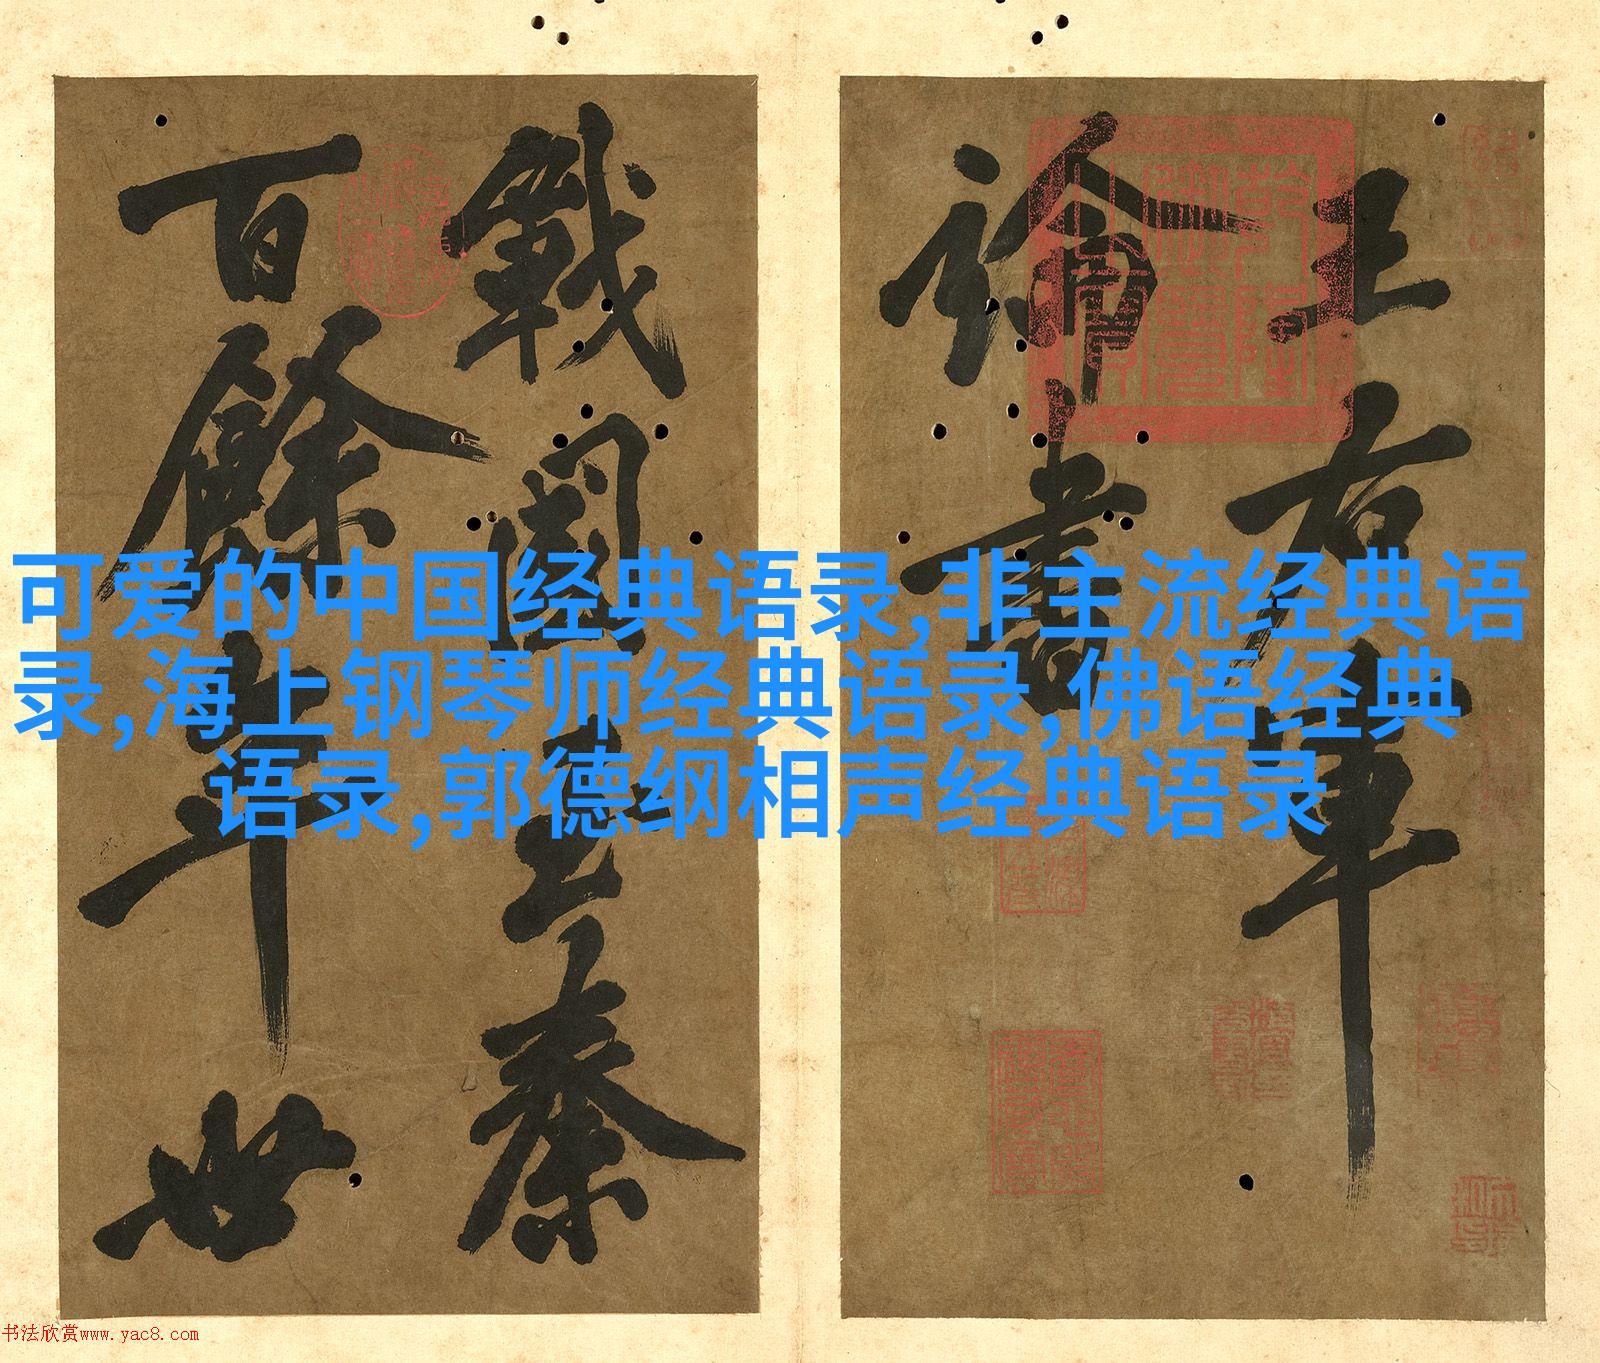 王右軍
論書
戰國至秦
百餘年世
乾隆御覽之寶
可爱的中国经典语录,非主流经典语
录,海上钢琴师经典语录,佛语经典
语录,郭德纲相声经典语录
书法欣赏www.yac8.com